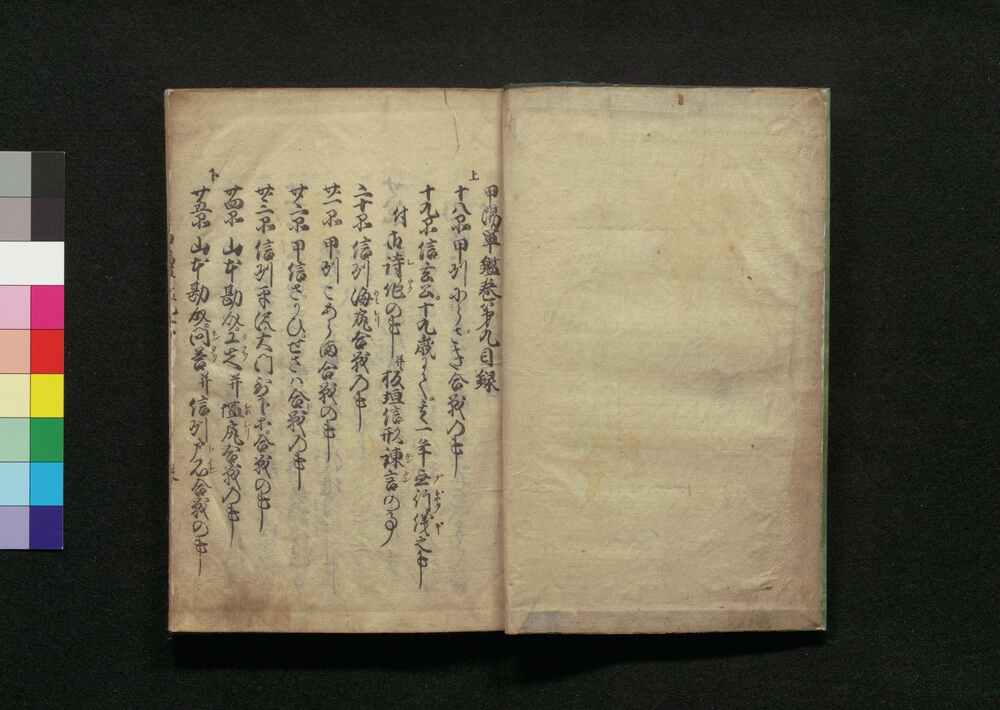 甲陽軍鑑巻第九目録
上
十八品甲列にらさき合戦の事
十九品信玄公十九歳 一年無行儀之事
付 詩作の事并板垣信形諫言の事
二十品信列海尻合戦の事
廿一品甲列こあら間合戦の事
廿二品甲信さかひせさハ合戦の事
廿三品信列平沢大門到下合戦の事
廿四品山本勘介工夫并塩尻合戦の事
下
廿五品山本勘介問答并信列戸石合戦の事